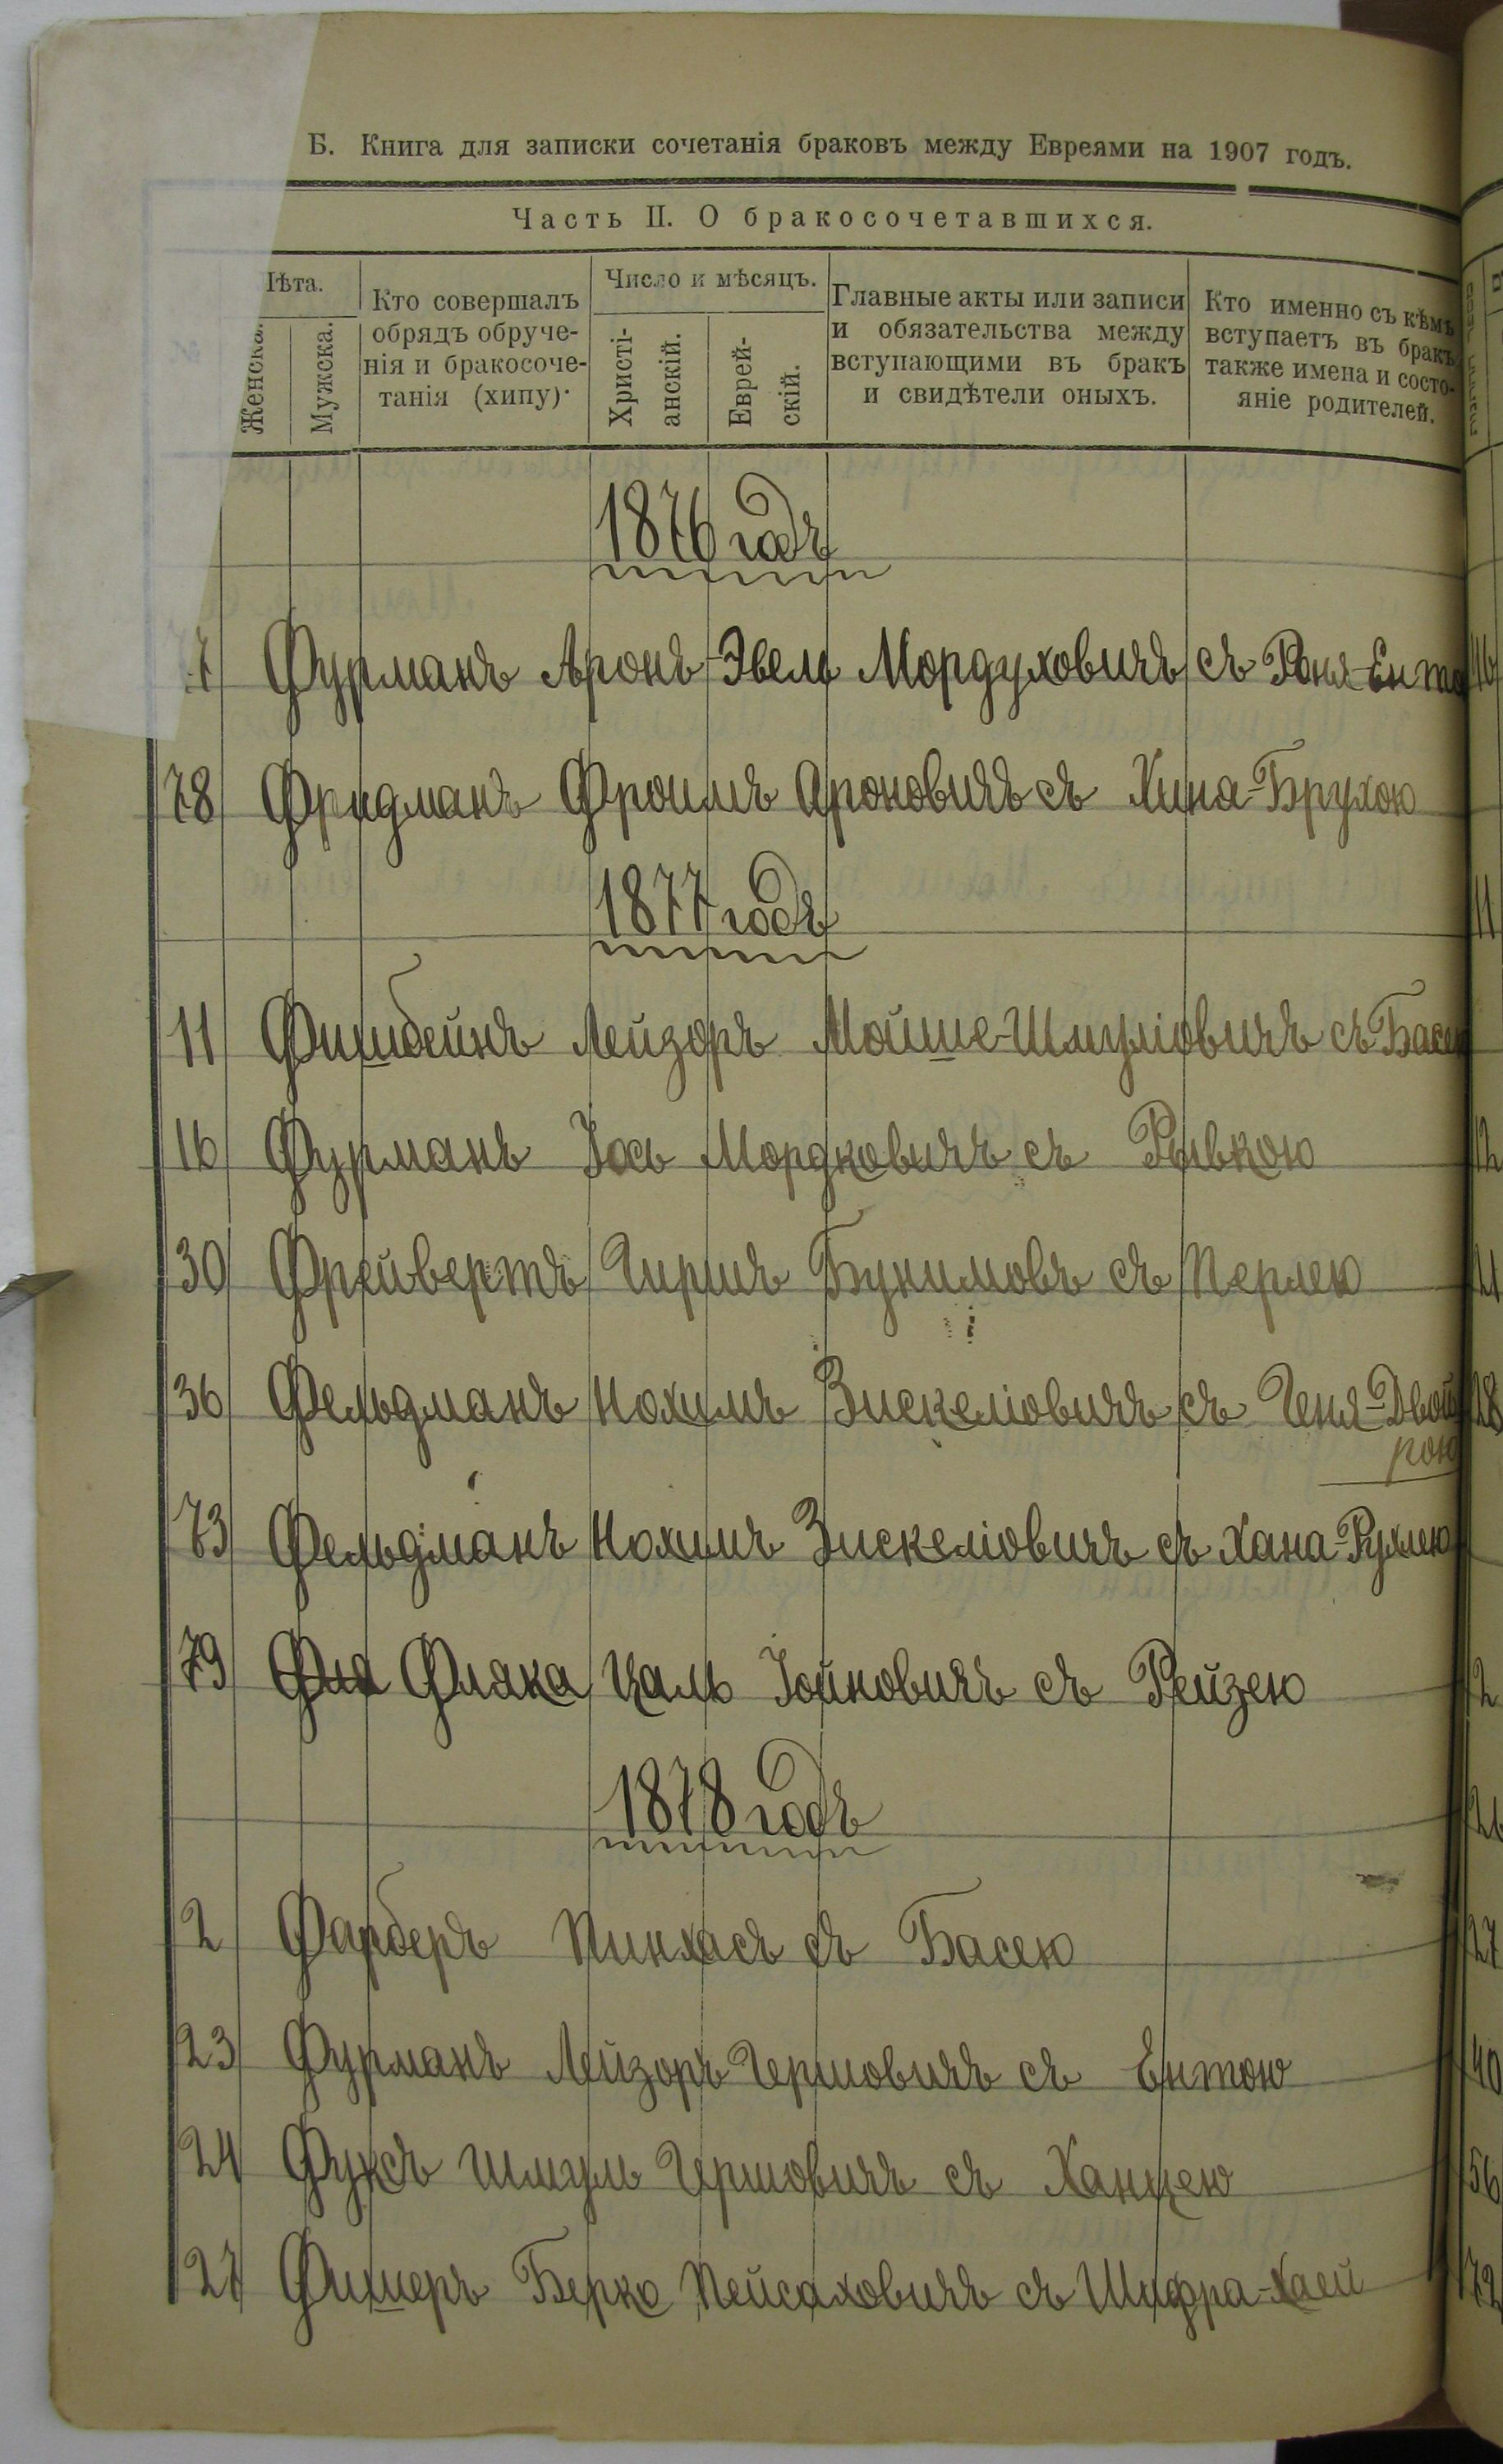 Б. Книга для записки сочетанія браковъ между Евреями на 1907 годъ.
Часть II. О бракосочетавшихся.
Лѣта.
Женска.
Мужска.
Кто совершалъ
обрядъ обруче-
нія и бракосоче-
танія (хипу).
Число и мѣсяцъ.
Христі-
анскій.
Еврей-
скій.
Главные акты или записи
и обязательства между
вступающими въ бракъ
и свидѣтели оныхъ.
Кто именно съ кѣмъ
вступаетъ въ бракъ,
также имена и состо-
яніе родителей.
1876 годъ
7 Фурманъ Аронъ-Эвель Мордуховичъ съ Раня-Ента
78 Фридманъ Фроимъ Ароновичъ съ Хина-Брухою
1877 годъ
11 Фишбейнъ Лейзоръ Мойше-Шмуліовичъ съ Басею
16 Фурманъ Іось Мордковичъ съ Рывкою
30 Фрейвертъ Гиршъ Бунимовъ съ Перлею
36 Фельдманъ Нохимъ Зискеліовичъ съ Геня-Двой
рою
73 Фельдманъ Нохимъ Зискеліовичъ съ Хана-Рухлею
79 Фля Фляка Цаль Іойновичъ съ Рейзею
1878 годъ
2 Фарберъ Пинхасъ съ Басею
23 Фурманъ Лейзоръ Гершовичъ съ Ентою
24 Фуксъ Шмуль Гершовичъ съ Ханцею
27 Фишеръ Берко Пейсаховичъ съ Шифра-Хаей